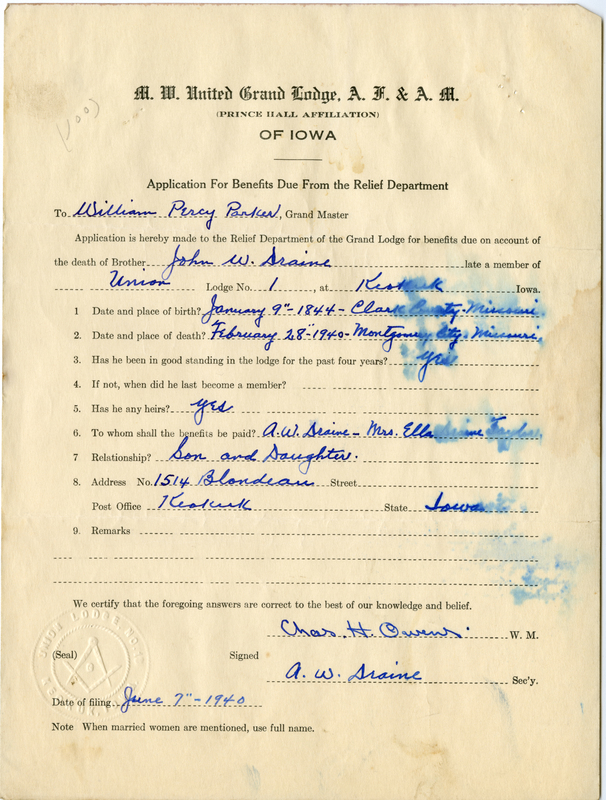 (100)
M. W. United Grand Lodge, A. F. & A. M.
(PRINCE HALL AFFILIATION)
OF IOWA
Application For Benefits Due From the Relief Department
To William Percy Parker, Grand Master
Application is hereby made to the Relief Department of the Grand Lodge for benefits due on account of
the death of Brother John W. Draine late a member of
Union Lodge No. 1, at Keokuk Iowa.
1 Date and place of birth? January 9" - 1844 - Clark County - Missouri
2. Date and place of death? February 28" - 1940 - Montgomery City - Missouri,
3. Has he been in good standing in the lodge for the past four years? yes
4. If not, when did he last become a member?
5. Has he any heirs? yes
6. To whom shall the benefits be paid? A. W. Draine - Mrs. Ella Draine Taylor
7 Relationship? Son and Daughter.
8. Address No. 1514 Blondeau Street
Post Office Keokuk State Iowa
9. Remarks
We certify that the foregoing answers are correct to the best of our knowledge and belief.
Chas. H. Owens. W. M.
(Seal) Signed
A. W. Draine Sec'y.
Date of filing June 7" - 1940
Note When married women are mentioned, use full name.